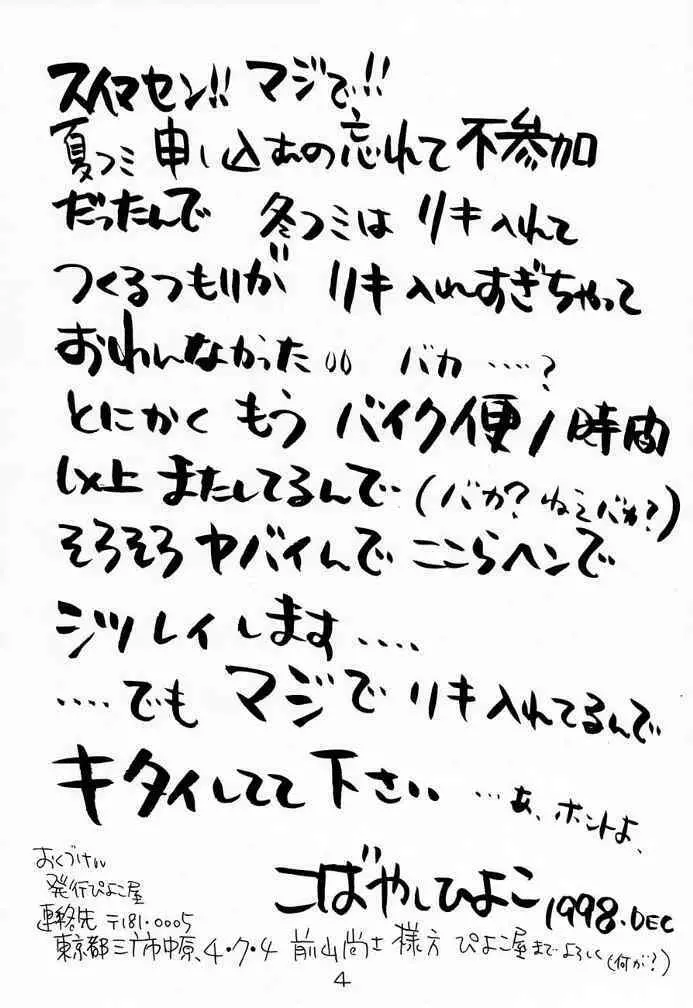 スイマセン!! マジで!!
夏コミ 申し込むの忘れて 不参加
だったんで 冬コミは リキ入れて
つくるつもりが リキ入れすぎちゃって
おわんなかった バカ ‥‥?
とにかく もう バイク便 1時間
以上 またしてるんで (バカ? ねえバカ?)
そろそろ ヤバイんで ここらヘンで
シツレイします ‥‥
‥‥でも マジで リキ入れてるんで
キタイしてて 下さい …あ、ホントよ、
こばやしひよこ 1998.DEC
おくづけ
発行 ぴよこ屋
連絡先 〒181-0005
東京都三鷹市中原、4・7・4 前山尚士 様方 ぴよこ屋までよろしく(何が?)
4